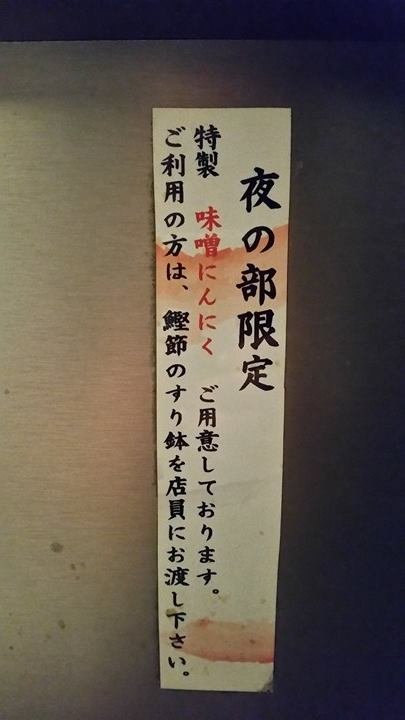 夜の部限定
特製 味噌にんにく ご用意しております。
ご利用の方は、鰹節のすり鉢を店員にお渡し下さい。